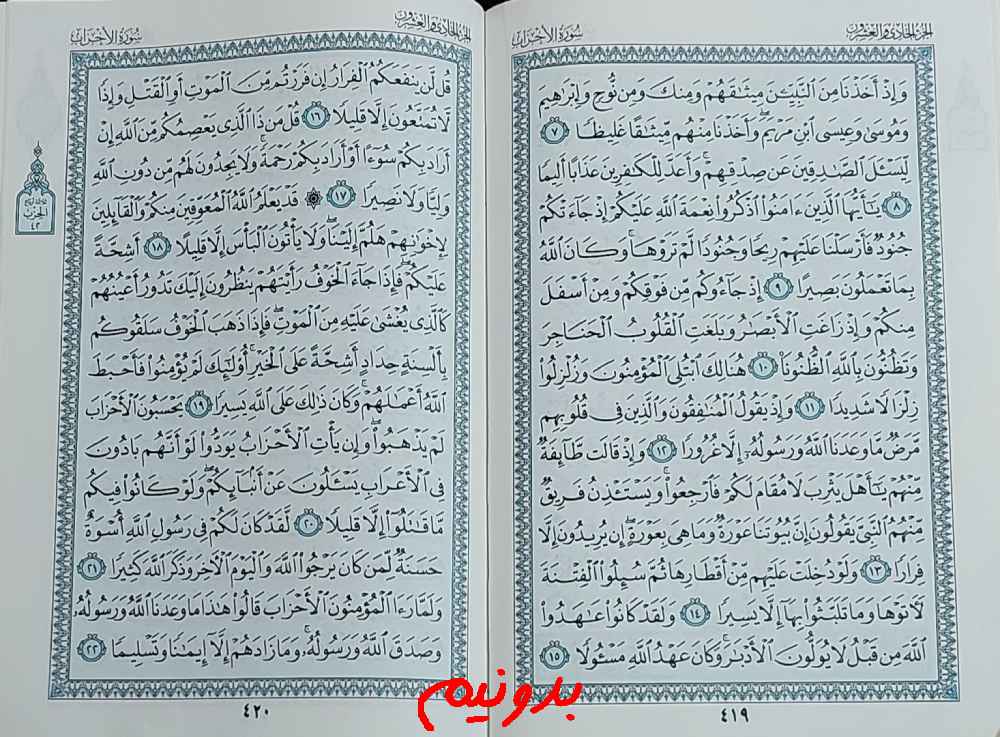 الجزء الحادي والعشرون
سُورَةُ الأَحْزَابِ
وَإِذْ أَخَذْنَا مِنَ ٱلنَّبِيِّـۧنَ مِيثَـٰقَهُمْ وَمِنكَ وَمِن نُّوحٍ وَإِبْرَٰهِيمَ
وَمُوسَىٰ وَعِيسَى ٱبْنِ مَرْيَمَ ۖ وَأَخَذْنَا مِنْهُم مِّيثَـٰقًا غَلِيظًا ٧
لِّيَسْـَٔلَ ٱلصَّـٰدِقِينَ عَن صِدْقِهِمْ ۚ وَأَعَدَّ لِلْكَـٰفِرِينَ عَذَابًا أَلِيمًا
٨ يَـٰٓأَيُّهَا ٱلَّذِينَ ءَامَنُوا۟ ٱذْكُرُوا۟ نِعْمَةَ ٱللَّهِ عَلَيْكُمْ إِذْ جَآءَتْكُمْ
جُنُودٌ فَأَرْسَلْنَا عَلَيْهِمْ رِيحًا وَجُنُودًا لَّمْ تَرَوْهَا ۚ وَكَانَ ٱللَّهُ
بِمَا تَعْمَلُونَ بَصِيرًا ٩ إِذْ جَآءُوكُم مِّن فَوْقِكُمْ وَمِنْ أَسْفَلَ
مِنكُمْ وَإِذْ زَاغَتِ ٱلْأَبْصَـٰرُ وَبَلَغَتِ ٱلْقُلُوبُ ٱلْحَنَاجِرَ
وَتَظُنُّونَ بِٱللَّهِ ٱلظُّنُونَا۠ ١٠ هُنَالِكَ ٱبْتُلِىَ ٱلْمُؤْمِنُونَ وَزُلْزِلُوا۟
زِلْزَالًا شَدِيدًا ١١ وَإِذْ يَقُولُ ٱلْمُنَـٰفِقُونَ وَٱلَّذِينَ فِى قُلُوبِهِم
مَّرَضٌ مَّا وَعَدَنَا ٱللَّهُ وَرَسُولُهُۥٓ إِلَّا غُرُورًا ١٢ وَإِذْ قَالَت طَّآئِفَةٌ
مِّنْهُمْ يَـٰٓأَهْلَ يَثْرِبَ لَا مُقَامَ لَكُمْ فَٱرْجِعُوا۟ ۚ وَيَسْتَـْٔذِنُ فَرِيقٌ
مِّنْهُمُ ٱلنَّبِىَّ يَقُولُونَ إِنَّ بُيُوتَنَا عَوْرَةٌ وَمَا هِىَ بِعَوْرَةٍ ۖ إِن يُرِيدُونَ إِلَّا
فِرَارًا ١٣ وَلَوْ دُخِلَتْ عَلَيْهِم مِّنْ أَقْطَارِهَا ثُمَّ سُئِلُوا۟ ٱلْفِتْنَةَ
لَـَٔاتَوْهَا وَمَا تَلَبَّثُوا۟ بِهَآ إِلَّا يَسِيرًا ١٤ وَلَقَدْ كَانُوا۟ عَـٰهَدُوا۟
ٱللَّهَ مِن قَبْلُ لَا يُوَلُّونَ ٱلْأَدْبَـٰرَ ۚ وَكَانَ عَهْدُ ٱللَّهِ مَسْـُٔولًا ١٥
٤١٩
الجزء الحادي والعشرون
سُورَةُ الأَحْزَابِ
قُل لَّن يَنفَعَكُمُ ٱلْفِرَارُ إِن فَرَرْتُم مِّنَ ٱلْمَوْتِ أَوِ ٱلْقَتْلِ وَإِذًا
لَّا تُمَتَّعُونَ إِلَّا قَلِيلًا ١٦ قُلْ مَن ذَا ٱلَّذِى يَعْصِمُكُم مِّنَ ٱللَّهِ إِنْ
أَرَادَ بِكُمْ سُوٓءًا أَوْ أَرَادَ بِكُمْ رَحْمَةً ۚ وَلَا يَجِدُونَ لَهُم مِّن دُونِ ٱللَّهِ
وَلِيًّا وَلَا نَصِيرًا ١٧ ۞ قَدْ يَعْلَمُ ٱللَّهُ ٱلْمُعَوِّقِينَ مِنكُمْ وَٱلْقَآئِلِينَ
لِإِخْوَٰنِهِمْ هَلُمَّ إِلَيْنَا ۖ وَلَا يَأْتُونَ ٱلْبَأْسَ إِلَّا قَلِيلًا ١٨ أَشِحَّةً
عَلَيْكُمْ ۖ فَإِذَا جَآءَ ٱلْخَوْفُ رَأَيْتَهُمْ يَنظُرُونَ إِلَيْكَ تَدُورُ أَعْيُنُهُمْ
كَٱلَّذِى يُغْشَىٰ عَلَيْهِ مِنَ ٱلْمَوْتِ ۖ فَإِذَا ذَهَبَ ٱلْخَوْفُ سَلَقُوكُم
بِأَلْسِنَةٍ حِدَادٍ أَشِحَّةً عَلَى ٱلْخَيْرِ ۚ أُو۟لَـٰٓئِكَ لَمْ يُؤْمِنُوا۟ فَأَحْبَطَ
ٱللَّهُ أَعْمَـٰلَهُمْ ۚ وَكَانَ ذَٰلِكَ عَلَى ٱللَّهِ يَسِيرًا ١٩ يَحْسَبُونَ ٱلْأَحْزَابَ
لَمْ يَذْهَبُوا۟ ۖ وَإِن يَأْتِ ٱلْأَحْزَابُ يَوَدُّوا۟ لَوْ أَنَّهُم بَادُونَ
فِى ٱلْأَعْرَابِ يَسْـَٔلُونَ عَنْ أَنۢبَآئِكُمْ ۖ وَلَوْ كَانُوا۟ فِيكُم
مَّا قَـٰتَلُوٓا۟ إِلَّا قَلِيلًا ٢٠ لَّقَدْ كَانَ لَكُمْ فِى رَسُولِ ٱللَّهِ أُسْوَةٌ
حَسَنَةٌ لِّمَن كَانَ يَرْجُوا۟ ٱللَّهَ وَٱلْيَوْمَ ٱلْـَٔاخِرَ وَذَكَرَ ٱللَّهَ كَثِيرًا ٢١
وَلَمَّا رَءَا ٱلْمُؤْمِنُونَ ٱلْأَحْزَابَ قَالُوا۟ هَـٰذَا مَا وَعَدَنَا ٱللَّهُ وَرَسُولُهُۥ
وَصَدَقَ ٱللَّهُ وَرَسُولُهُۥ ۚ وَمَا زَادَهُمْ إِلَّآ إِيمَـٰنًا وَتَسْلِيمًا ٢٢
الحزب
٤٢
٤٢٠
بدونیم